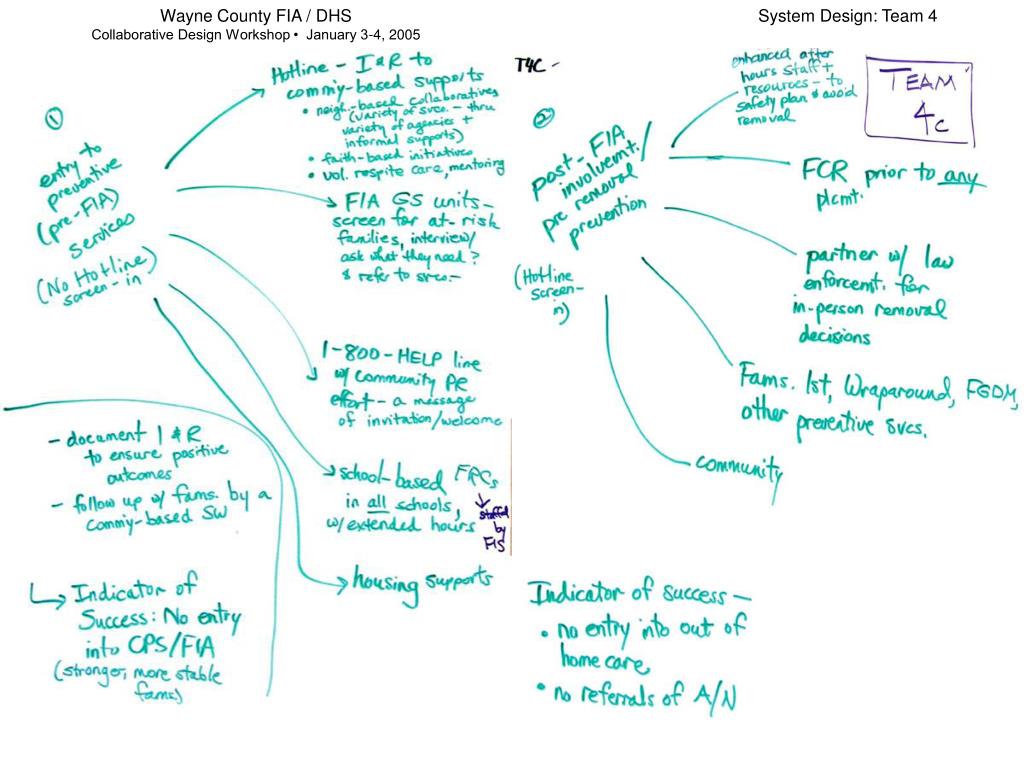 Wayne County FIA / DHS
Collaborative Design Workshop • January 3-4, 2005
System Design: Team 4
①
entry to
preventive
(pre-FIA)
services
(No Hotline)
screen-in
Hotline - I & R to
commy-based supports
• neigh.-based collaboratives
(variety of svcs. - thru
variety of agencies +
informal supports)
• faith-based initiatives
• vol. respite care, mentoring
FIA GS units-
screen for at-risk
families, interview/
ask what they need?
& refer to svcs.-
1-800-HELP line
w/ community PR
effort - a message
of invitation/welcome
school-based FRCs
in all schools,
w/extended hours
staffed
by
FIS
housing supports
- document I & R
to ensure positive
outcomes
- follow up w/ fams. by a
commy-based SW
Indicator of
Success: No entry
into CPS/FIA
(stronger, more stable
fams)
T4C -
TEAM
4c
②
post-FIA
involvemt./
pre removal
prevention
(Hotline
screen-
in)
enhanced after
hours staff +
resources - to
safety plan & avoid
removal
FCR prior to any
plcmt.
partner w/ law
enforcemt. for
in-person removal
decisions
Fams. 1st, Wraparound, FGDM,
other preventive svcs.
community
Indicator of success -
• no entry into out of
home care
• no referrals of A/N